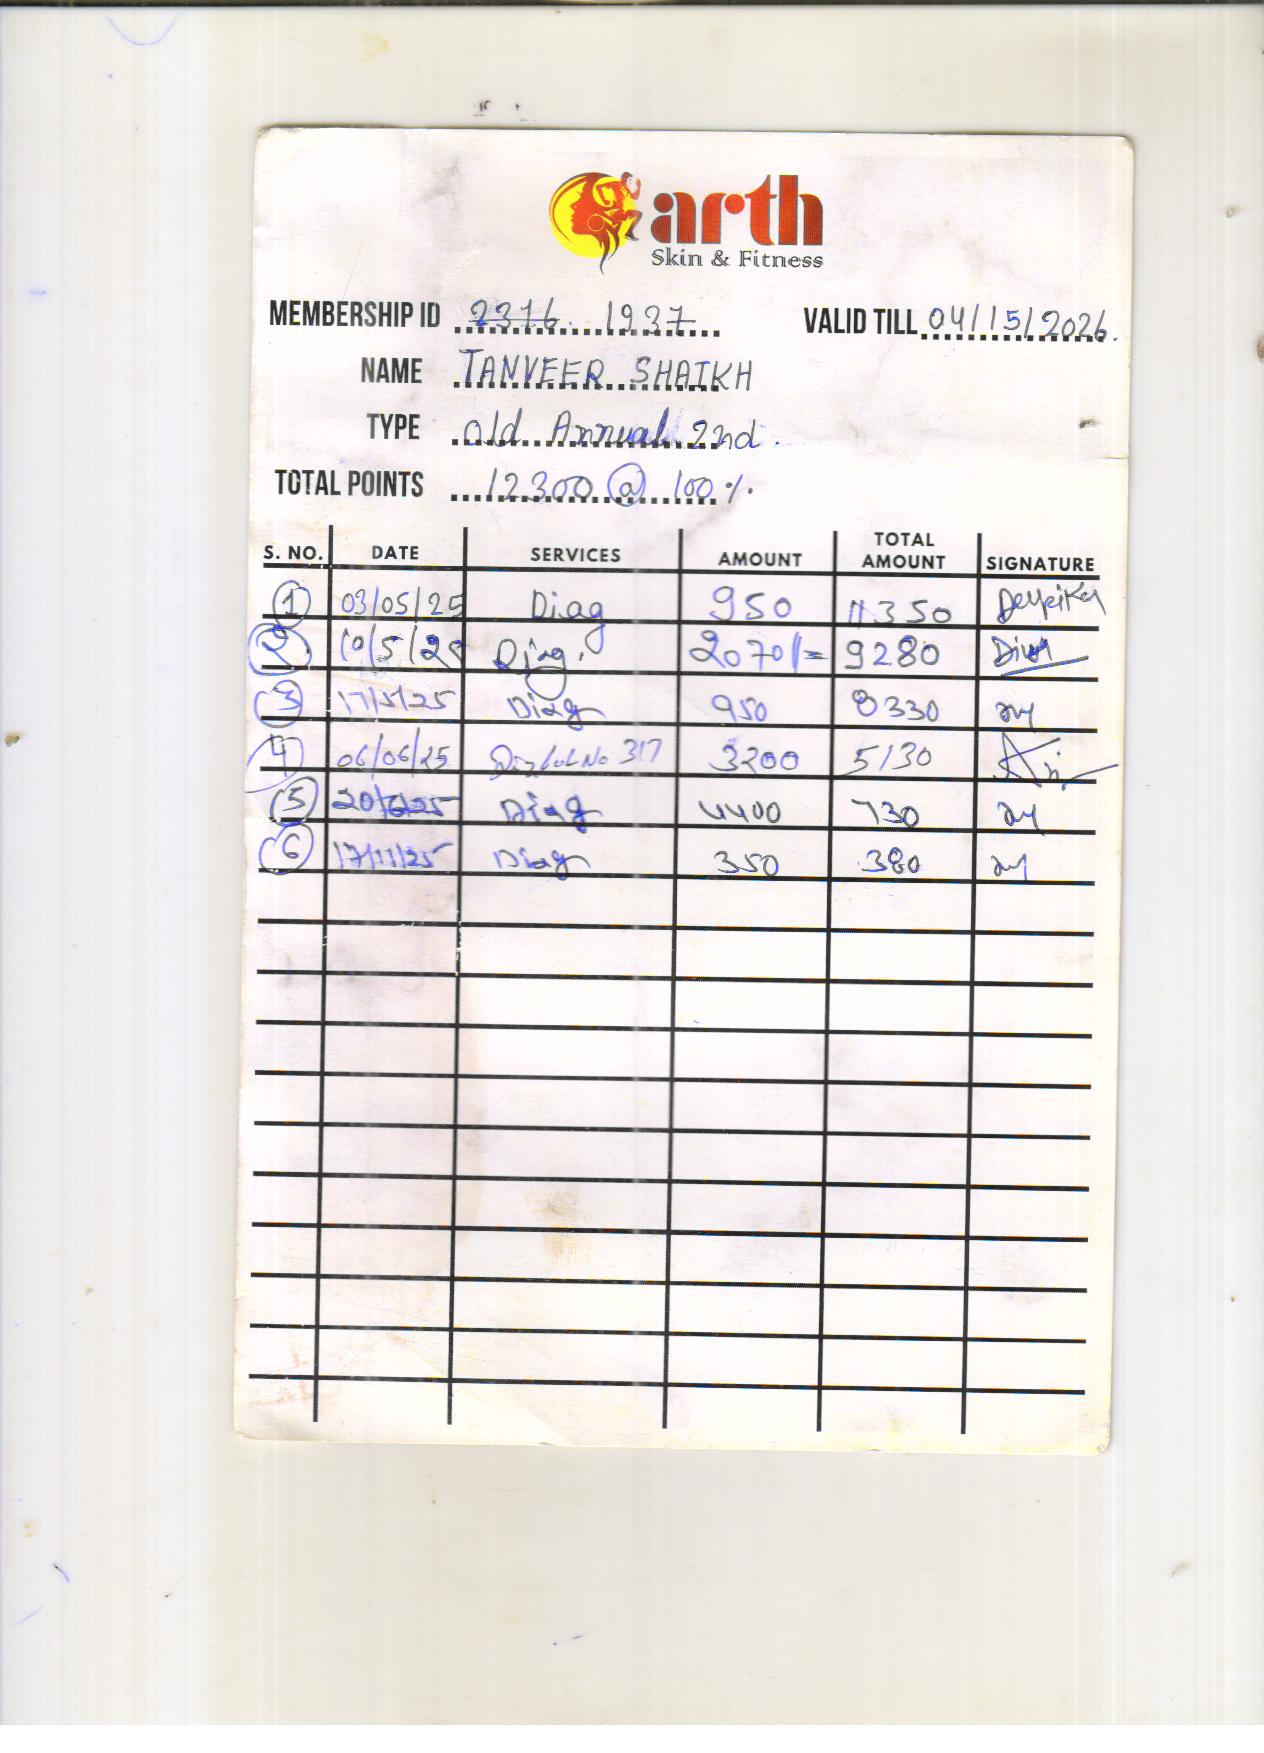 arth
Skin & Fitness
MEMBERSHIP ID 2316 1937 VALID TILL 04/15/2026
NAME TANVEER SHAIKH
TYPE old Annual 2nd.
TOTAL POINTS 12300 @ 100 %
S. NO. DATE SERVICES AMOUNT TOTAL AMOUNT SIGNATURE
1 03/05/25 Diag 950 11350
2. 10/5/25 Diag. 2070/= 9280
3 17/5/25 Diag 950 8330
4 06/06/25 No 317 3200 5130
5 20/6/25 Diag 4400 730
6 17/11/25 Diag 350 380